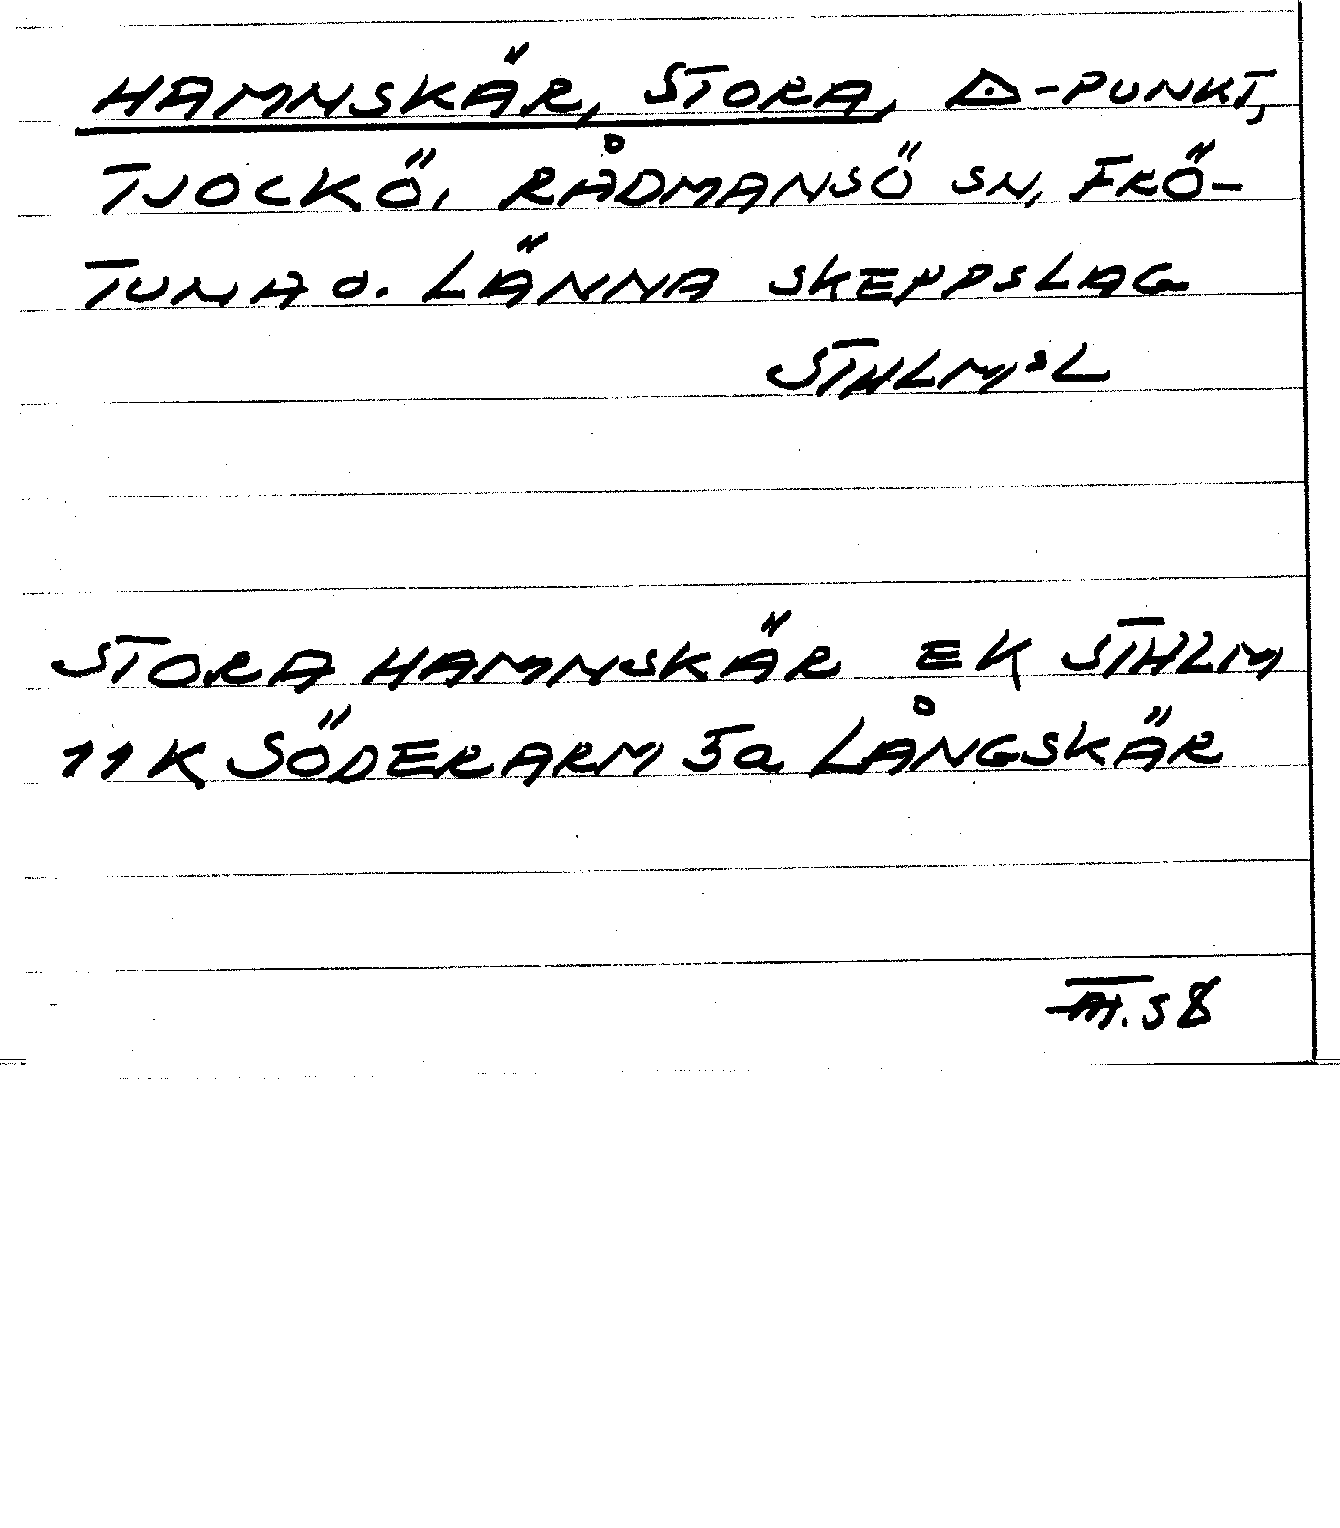 HAMNSKÄR, STORA, △-PUNKT,
TJOCKÖ, RÅDMANSÖ SN, FRÖ-
TUNA O. LÄNNA SKEPPSLAG
STHLM:S L
STORA HAMNSKÄR EK STHLM
11 K SÖDERARM 5a LÅNGSKÄR
58